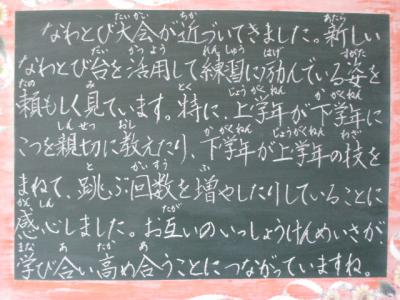 なわとび大会が近づいてきました。新しい
なわとび台を活用して練習に励んでいる姿を
頼もしく見ています。特に、上学年が下学年に
こつを親切に教えたり、下学年が上学年の技を
まねて、跳ぶ回数を増やしたりしていることに
感心しました。お互いのいっしょうけんめいさが、
学び合い高め合うことにつながっていますね。